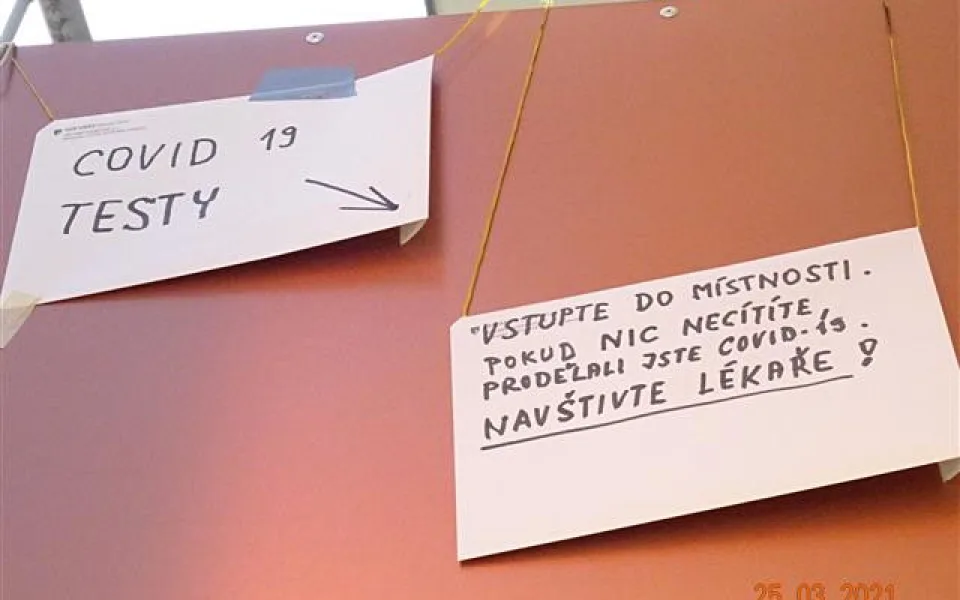 COVID 19
TESTY
VSTUPTE DO MÍSTNOSTI.
POKUD NIC NECÍTÍTE,
PRODĚLALI JSTE COVID-19.
NAVŠTIVTE LÉKAŘE!
25 03 2021